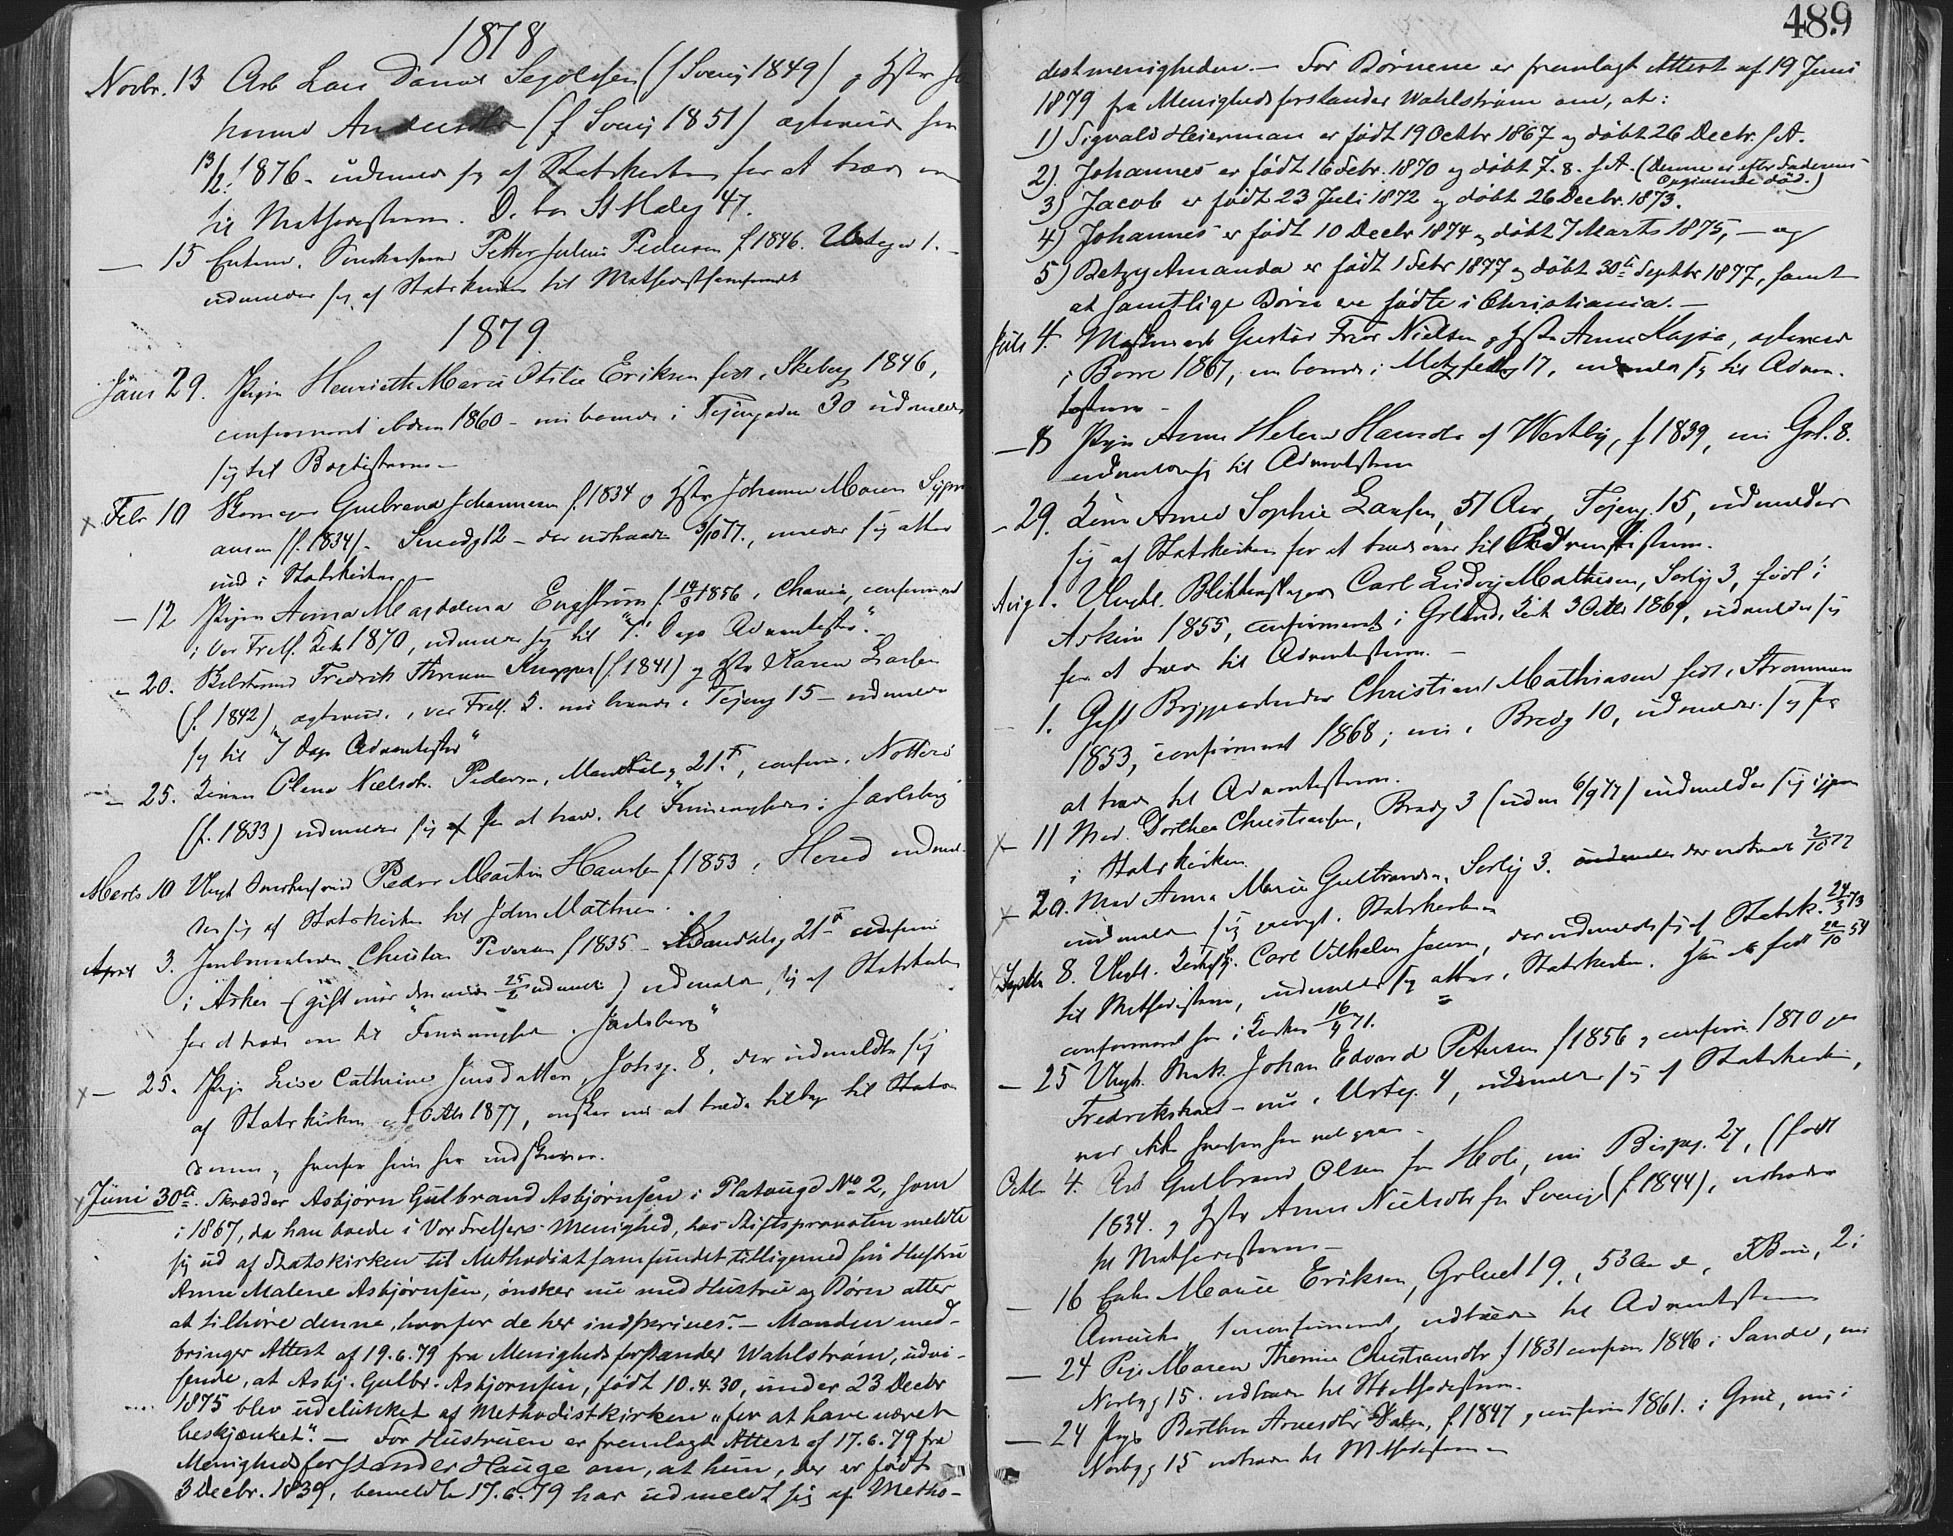 1878
Novbr. 13 Arb Lars Daniel (f Sverig 1849) og Hstr
(f Sverig 1851) ægteviet
13/2. 1876 – udmelder sig af Statskirken for at træde over
til Methodisterne. D. bor St Halvg 47.
— 15 Enkem. Petter Julius Pedersen f. 1846. 1. –
udmelder sig af Statskirken til Methodistsamfundet
1879.
Janr 29. Pigen Henriette Marie Otilie Eriksen født i Skeberg 1846,
confirmeret ibdem 1860 – nu boende i Tøiengaden 30 udmelder
sig til Baptisterne –
× Febr 10 Skomager Gulbrand Johannesen f. 1834 og Hstr Johanne Maren
(f. 1834). Smedg 12 – der udtraadte 3/10 77., melder sig atter
ind i Statskirken –
— 12 Pigen Anna Magdalena Engstrøm f. 1856 i Chania, confirmeret
i Vor Frels. Kirke 1870, udmelder sig til "7. Dags Adventister". –
– 20. Fredrik Knapper (f. 1841) og Hstr Karen Larsen
(f. 1842), ægteviet i Vor Frels. K. nu boende i Tøieng 15 – udmelder
sig til "7 Dags Adventister"
– 25. Konen Olena Nielsdtr. Pedersen, 21., confirm. i Nøtterø
(f. 1833) udmelder sig af for at træde til "Frimenigheden i Jarlsberg"
Marts 10 Ungk Pedr Martin Hansen f 1853 i Hered udmel-
der sig af Statskirken til John Mathesen.
April 3. Christen Pedersen f 1835 – 21 confirm
i Asker – (gift med den under 25/2 udmeldte) udmelder sig af Statskirken
for at træde over til "Frimenigheden i Jarlsberg"
× — 25. Pige Lise Cathrine Jensdatter, Johsg. 8, der udmeldte sig
af Statskirken Octbr 1877, ønsker nu at træde tilbage til Stats-
, hvorfor hun her indskrives.
× Juni 30te. Skrædder Asbjørn Gulbrand Asbjørnsen i Platougd No 2, som
i 1867, da han boede i Vor Frelsers Menighed, hos Stiftsprovsten meldte
sig ud af Statskirken til Methodistsamfundet tilligemed sin Hustru
Anne Malene Asbjørnsen, ønsker nu med Hustru og Børn atter
at tilhøre denne, hvorfor de her indskrives. – Manden med-
bringer Attest af 19.6.79 fra Menighedsforstander Wahlstrøm, udvi-
sende, at Asbj. Gulbr. Asbjørnsen, født 10.4.30, under 23 Decbr
1875 blev udelukket af Methodistkirken "for at have været
beskjænket". – For Hustruen er fremlagt Attest af 17.6.79 fra
Menighedsforstander Hauge om, at hun, der er født
3 Decbr. 1839, bemeldte 17.6.79 har udmeldt sig af Metho-
489
distmenigheden. – For Børnene er fremlagt Attest af 19 Juni
1879 fra Menighedsforstander Wahlstrøm om, at:
1) Sigvald Heierman er født 19 Octbr 1867 og døbt 26 Decbr. s. A.
2) Johannes er født 16 Febr. 1870 og døbt 7.8. s. A. (Denne er efter Faderens
Opgivende død.)
3) Jacob er født 23 Juli 1872 og døbt 26 Decbr. 1873.
4) Johannes er født 10 Decbr 1874 og døbt 7 Marts 1875, – og
5) Betzy Amanda er født 1 Febr 1877 og døbt 30te Septbr 1877, samt
at samtlige Børn ere fødte i Christiania. –
Juli 4. Gustav Nielsen og Hstr Anne Kajsa, ægteviet
i Borre 1867, nu boende i Metzfeldtsg 17, udmelder sig til Adven-
tisterne –
— 8 Pigen Anne Helene Hansdr af Westby, f 1839, nu Grl. 8.
udmelder sig til Adventisterne
– 29. Kone Anne Sophie Larsen, 51 Aar, Tøieng. 15, udmelder
sig af Statskirken for at træde over til Adventisterne.
Aug 1. Ungk. Blikkenslager Carl Ludvig Mathisen, Sorlig 3, født i
Askim 1855, confirmeret i Grlands Kirke 3 Octbr 1869, udmelder sig
for at træde til Adventisterne. –
— 1. Gift Bryggearbeider Christian Mathiasen født i Strømmen
1853, confirmeret 1868; nu i Bredg 10, udmelder sig for
at træde til Adventisterne.
× — 11 Mad. Dorthea Christiansen, Bredg 3 (uden 6/9 77) indmelder sig igjen
i Statskirken
× – 20. Mad Anna Marie Gulbrandsen, Sorlig 3. der udtraadte 2/10 77
indmelder sig igjen i Statskirken
× Septbr 8. Ungk. Carl Vilhelm Jensen, der udmeldte sig af Statsk. 24/3 73
til Methodisterne, indmelder sig atter i Statskirken. Han er født 22/10 54
confirmeret her i Kirken 16/4 71.
— 25 Ungk. Johan Edvard Petersen f 1856 og confirm. 1870 paa
Fredrikshald – nu i Urteg. 4, udmelder sig af Statskirken,
ved ikke hvorhen han vil gaa –
Octbr 4. Arb Gulbrand Olsen fra Hole, nu Bispeg. 27, (født
1834. og Hstr Anne Nielsdtr fra Sverig (f. 1844), udtræder
til Methodisterne –
— 16 Enke Marie Eriksen, Grland 19, 53 Aar, 3 Børn, 2 i
Amerika, 1 uconfirmeret, udtræder til Adventisterne
— 24 Pige Maren Thorine Christiansdtr f 1831 confirm 1846 i Sande, nu
Norbyg 15. udtræder til Methodisterne.
— 24 Pige Berthea Arnesdtr Dalen, f. 1847, confirm 1861. i Grue, nu i
Norbyg 15 udtræder til Methodisterne –